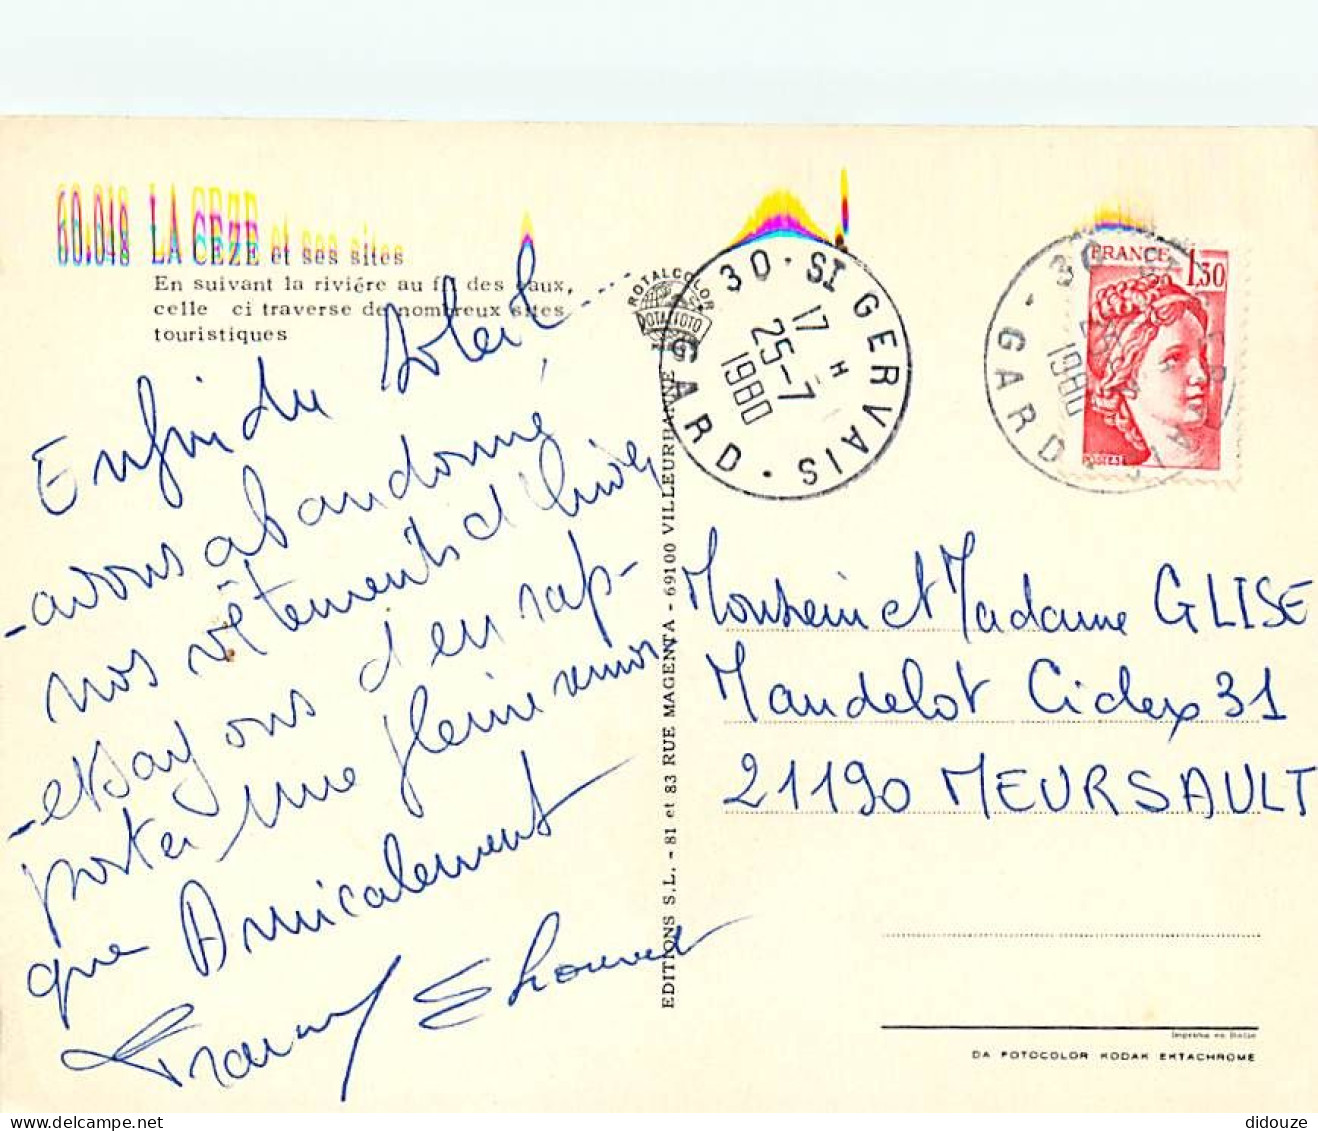 60.048 LA CEZE et ses sites
En suivant la riviére au fil des eaux,
celle ci traverse de nombreux sites
touristiques
Enfin du soleil
- avons abandonné
nos vêtements d'hiver
- essayons d'en rap-
porter une pleine remor
que Amicalement
ROTALCOLOR
ROTALFOTO
EDITIONS S.L. - 81 et 83 RUE MAGENTA - 69100 VILLEURBANNE
30 · ST GERVAIS · GARD
17 H
25-7
1980
FRANCE 1,30
POSTES
30 · GARD
1980
Monsieur et Madame GLISE
Mandelot Cidex 31
21190 MEURSAULT
Imprimé en Italie
DA FOTOCOLOR KODAK EKTACHROME
delcampe.net
didouze